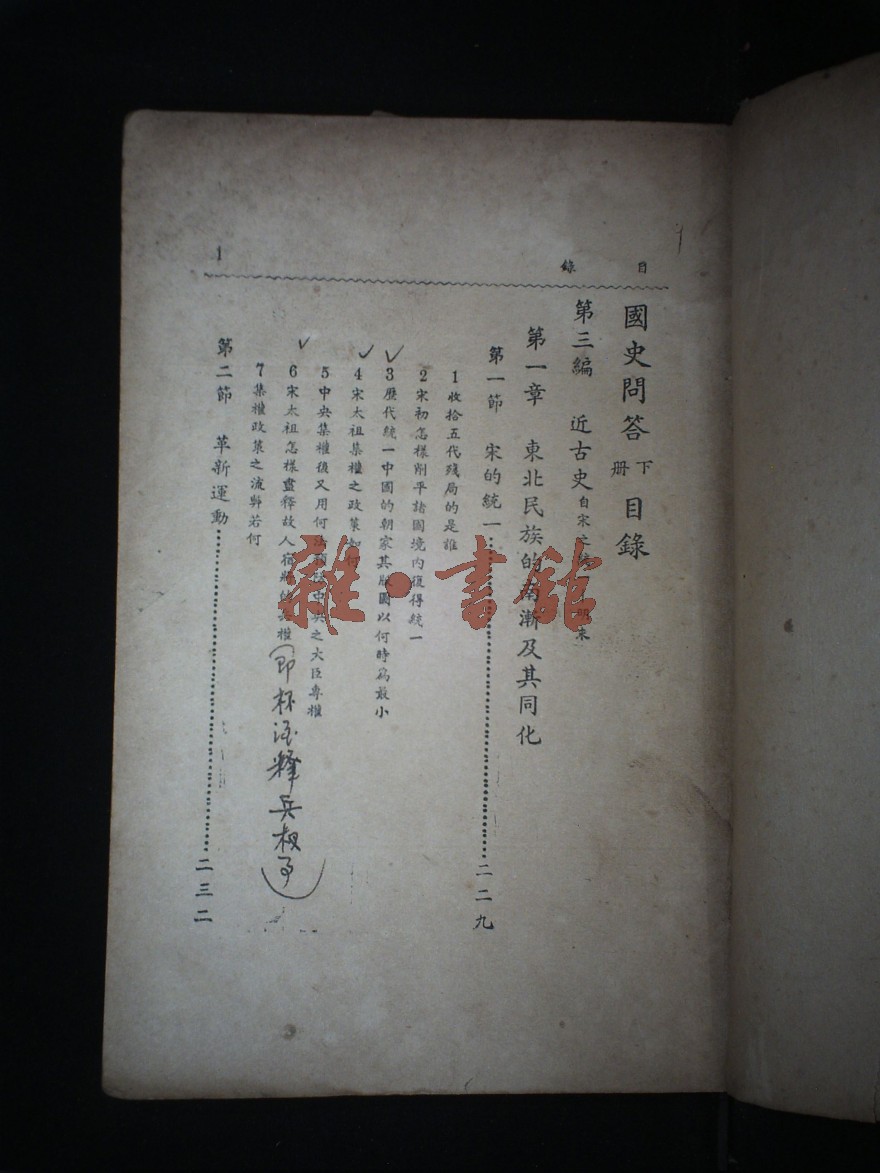 目錄
1
國史問答下册目錄
第三編 近古史自宋之 明末
第一章 東北民族的南漸及其同化
第一節 宋的統一……二二九
1 收拾五代殘局的是誰
2 宋初怎樣削平諸國境内復得統一
3 歷代統一中國的朝家其版圖以何時爲最小
4 宋太祖集權之政策如何
5 中央集權後又用何法 中央之大臣專權
6 宋太祖怎樣盡釋故人宿將的兵權(即杯酒釋兵权事)
7 集權政策之流弊若何
第二節 革新運動……二三二
雜·書館